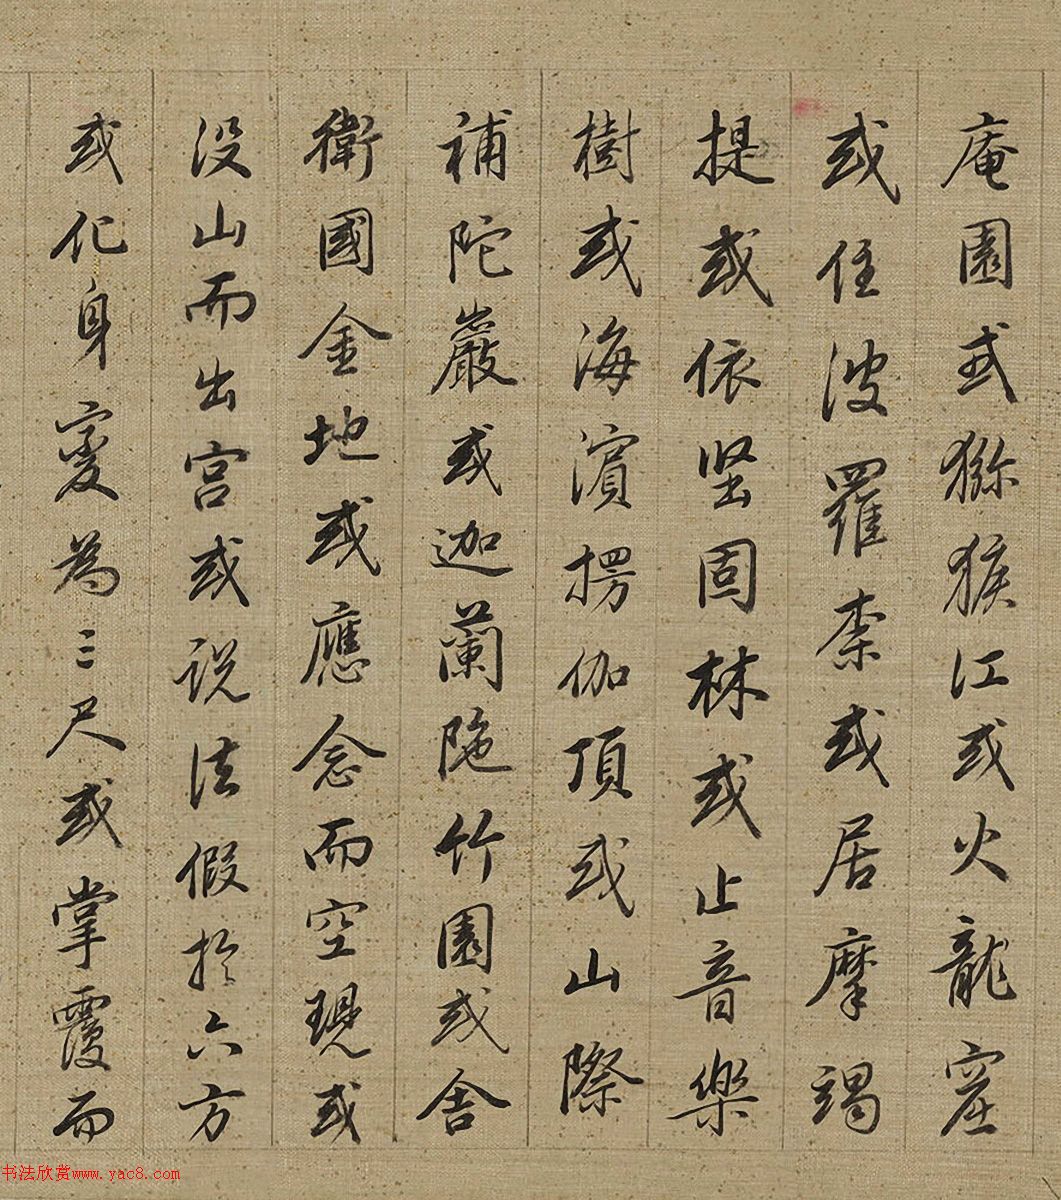 庵園或獼猴江或火龍窟
或住波羅柰或居摩竭
提或依堅固林或止音樂
樹或海濱楞伽頂或山際
補陀巖或迦蘭陁竹園或舍
衛國金地或應念而空現或
没山而出宮或說法假於六方
或化身變為三尺或掌覆而
书法欣赏www.yac8.com